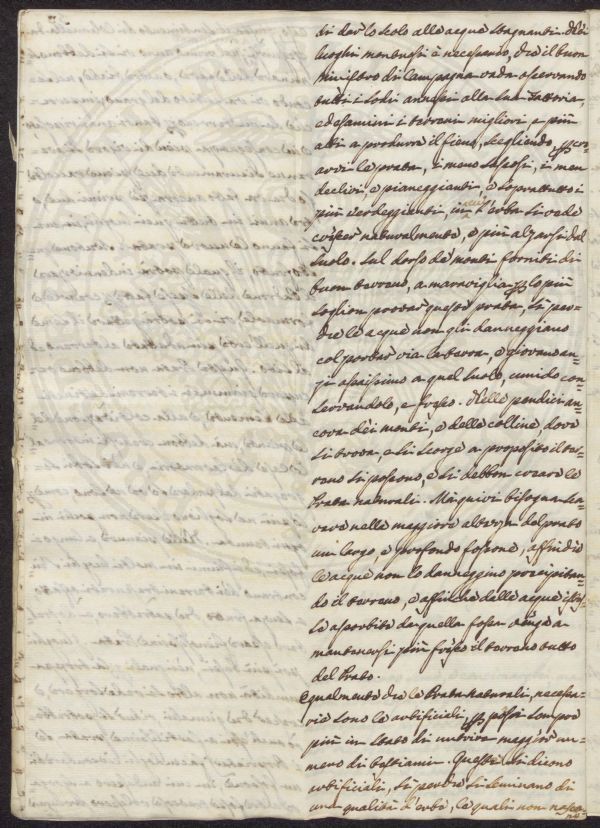 di dar lo scolo alle acque stagnanti. Nei
luoghi montuosi è necessario, che il buon
Ministro di Campagna vada osservando
tutti i sodi annessi alla sua Fattoria,
ed esamini i terreni migliori e più
atti a produrre il fieno, scegliendo
arvi le prata, i meno sassosi, i men
declivi, e pianeggianti, e soprattutto i
più verdeggianti, in cui l'erba si vede
crescer naturalmente, e più alzarsi dal
suolo. Sul dorso de' monti forniti di
buon terreno, a maraviglia lo più
soglion provar queste prata, sì per-
chè le acque non gli danneggiano
col portar via la terra, e giovano an-
zi assaissimo a quel suolo, umido con-
servandolo, e fresco. Nelle pendici an-
cora dei monti, e delle colline, dove
si trova, e si scorge a proposito il ter-
reno si possono, e si debbon creare le
Prata naturali. Ma quivi bisogna sca-
vare nella maggiore altezza del prato
un largo, e profondo fossone, affinchè
le acque non lo danneggino precipitan-
do il terreno, e affinchè delle acque is-
te assorbite da quella fossa venga a
mantenersi più fresco il terreno tutto
del Prato.
Egualmente che le Prata naturali, necessa-
rie sono le artificiali, esser sempre
più in stato di nutrire maggior nu-
mero di bestiami. Queste si dicono
artificiali, sì perchè si seminano di
una qualità d'erbe, le quali non nasco-
no